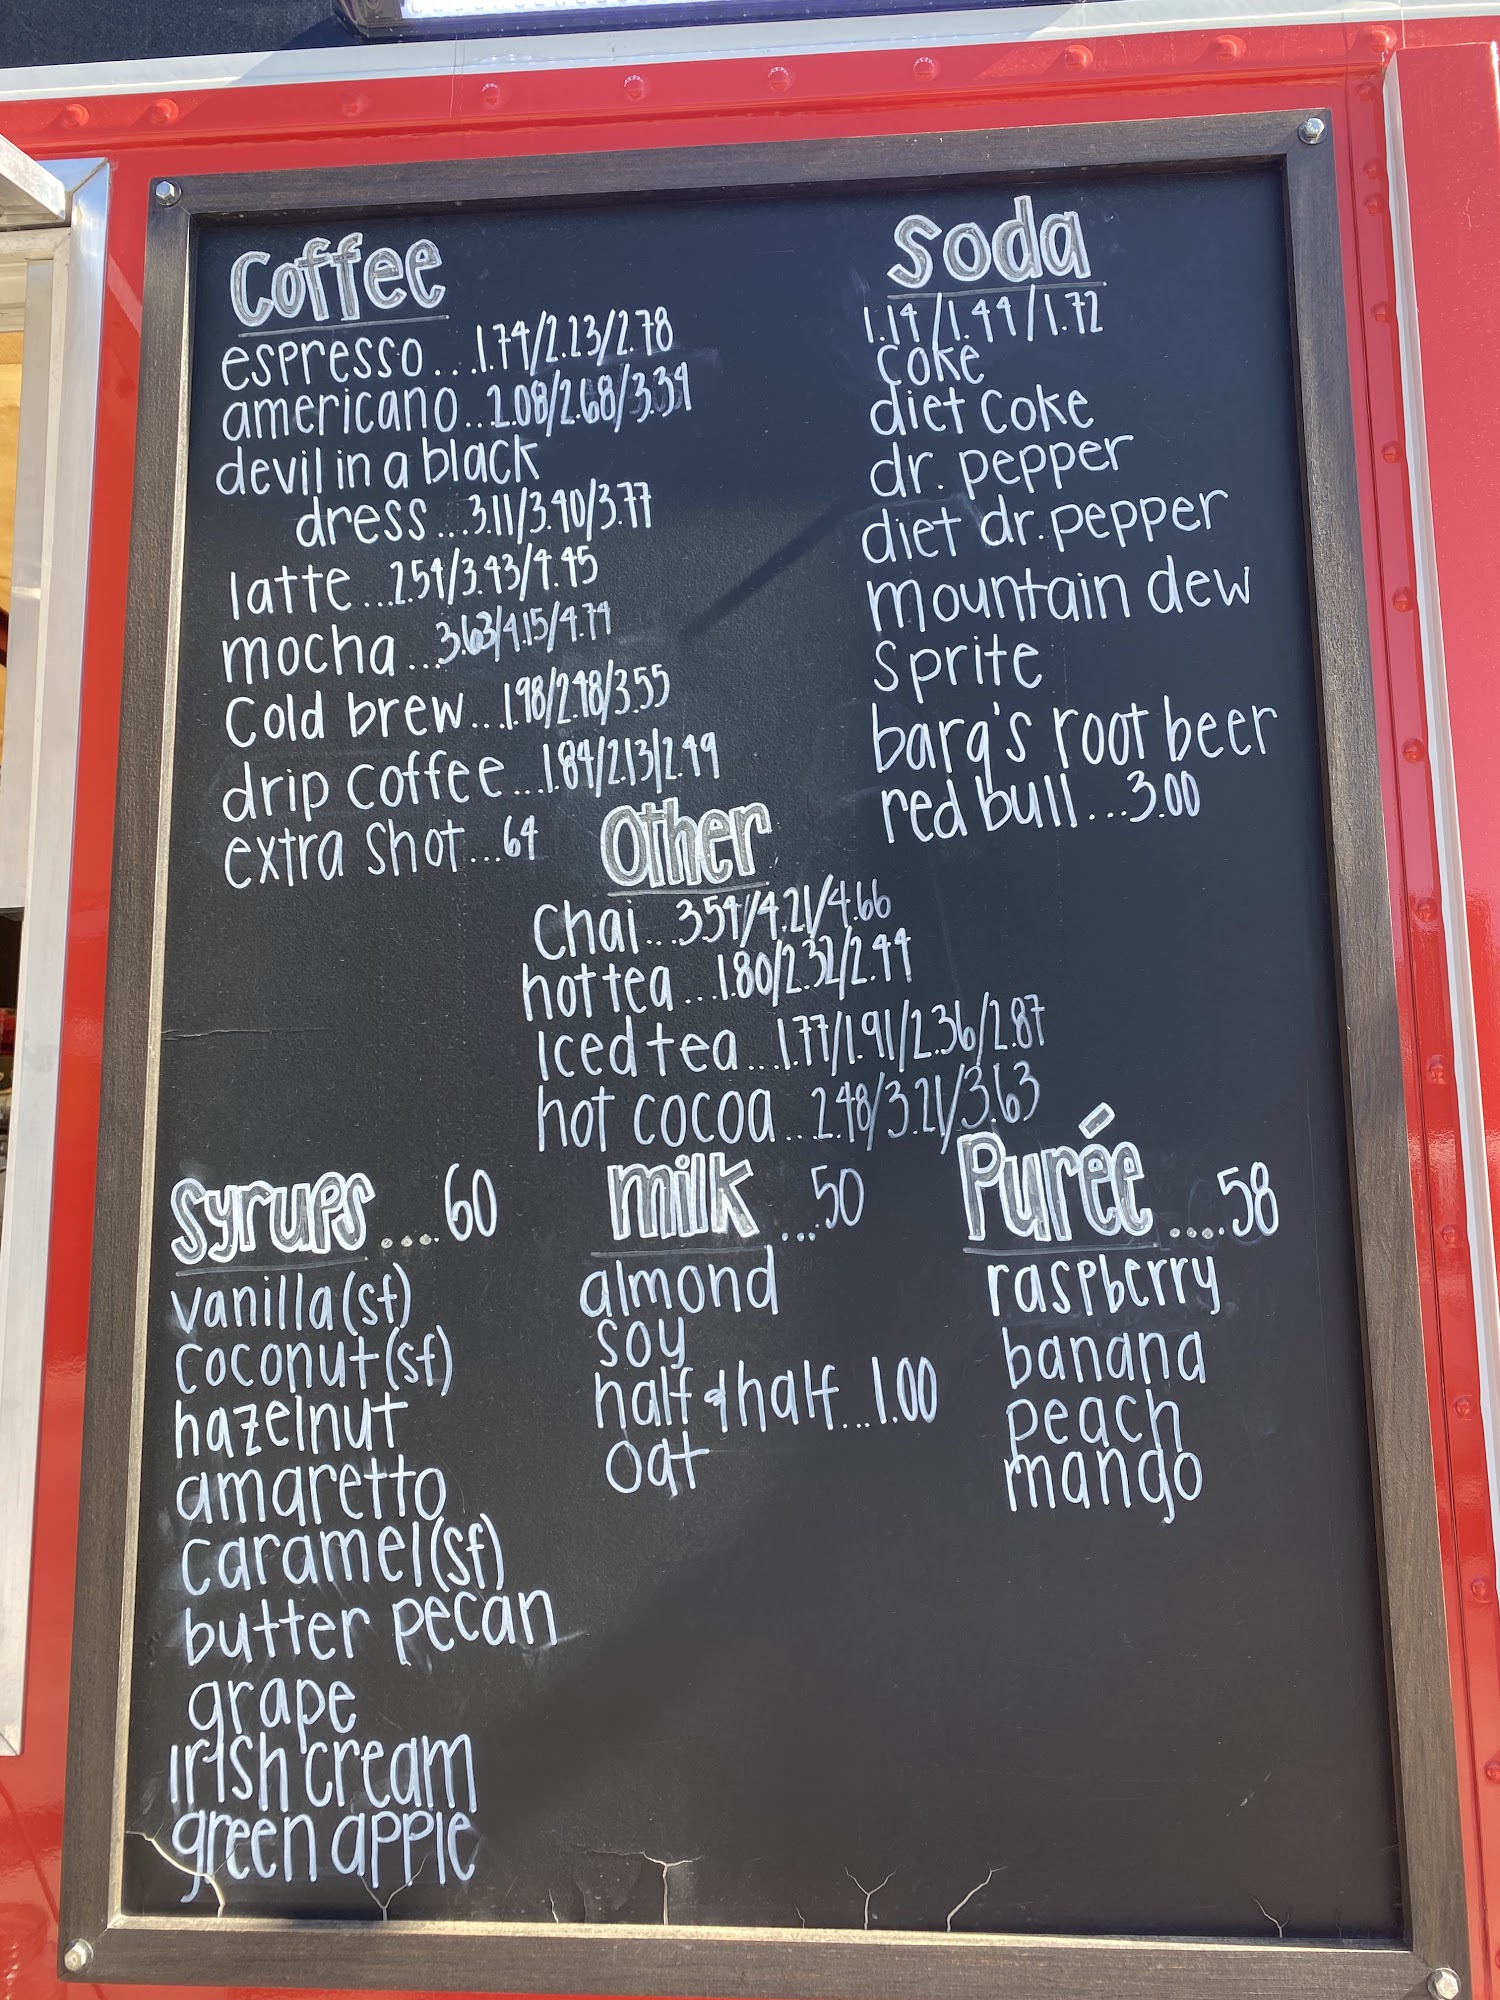 Coffee
espresso...1.74/2.23/2.78
americano...2.08/2.68/3.34
devil in a black
dress...3.11/3.40/3.77
latte...2.54/3.43/4.45
mocha...3.63/4.15/4.74
Cold brew...1.98/2.48/3.55
drip coffee...1.84/2.13/2.49
extra shot...64
Soda
1.14/1.44/1.72
coke
diet coke
dr. pepper
diet dr. pepper
mountain dew
sprite
barq's root beer
red bull...3.00
Other
Chai...3.54/4.21/4.66
hot tea...1.80/2.32/2.44
Iced tea...1.77/1.91/2.36/2.87
hot cocoa...2.48/3.21/3.63
Syrups....60
vanilla (sf)
coconut (sf)
hazelnut
amaretto
caramel (sf)
butter pecan
grape
irish cream
green apple
milk....50
almond
soy
half & half...1.00
oat
Purée....58
raspberry
banana
peach
mango